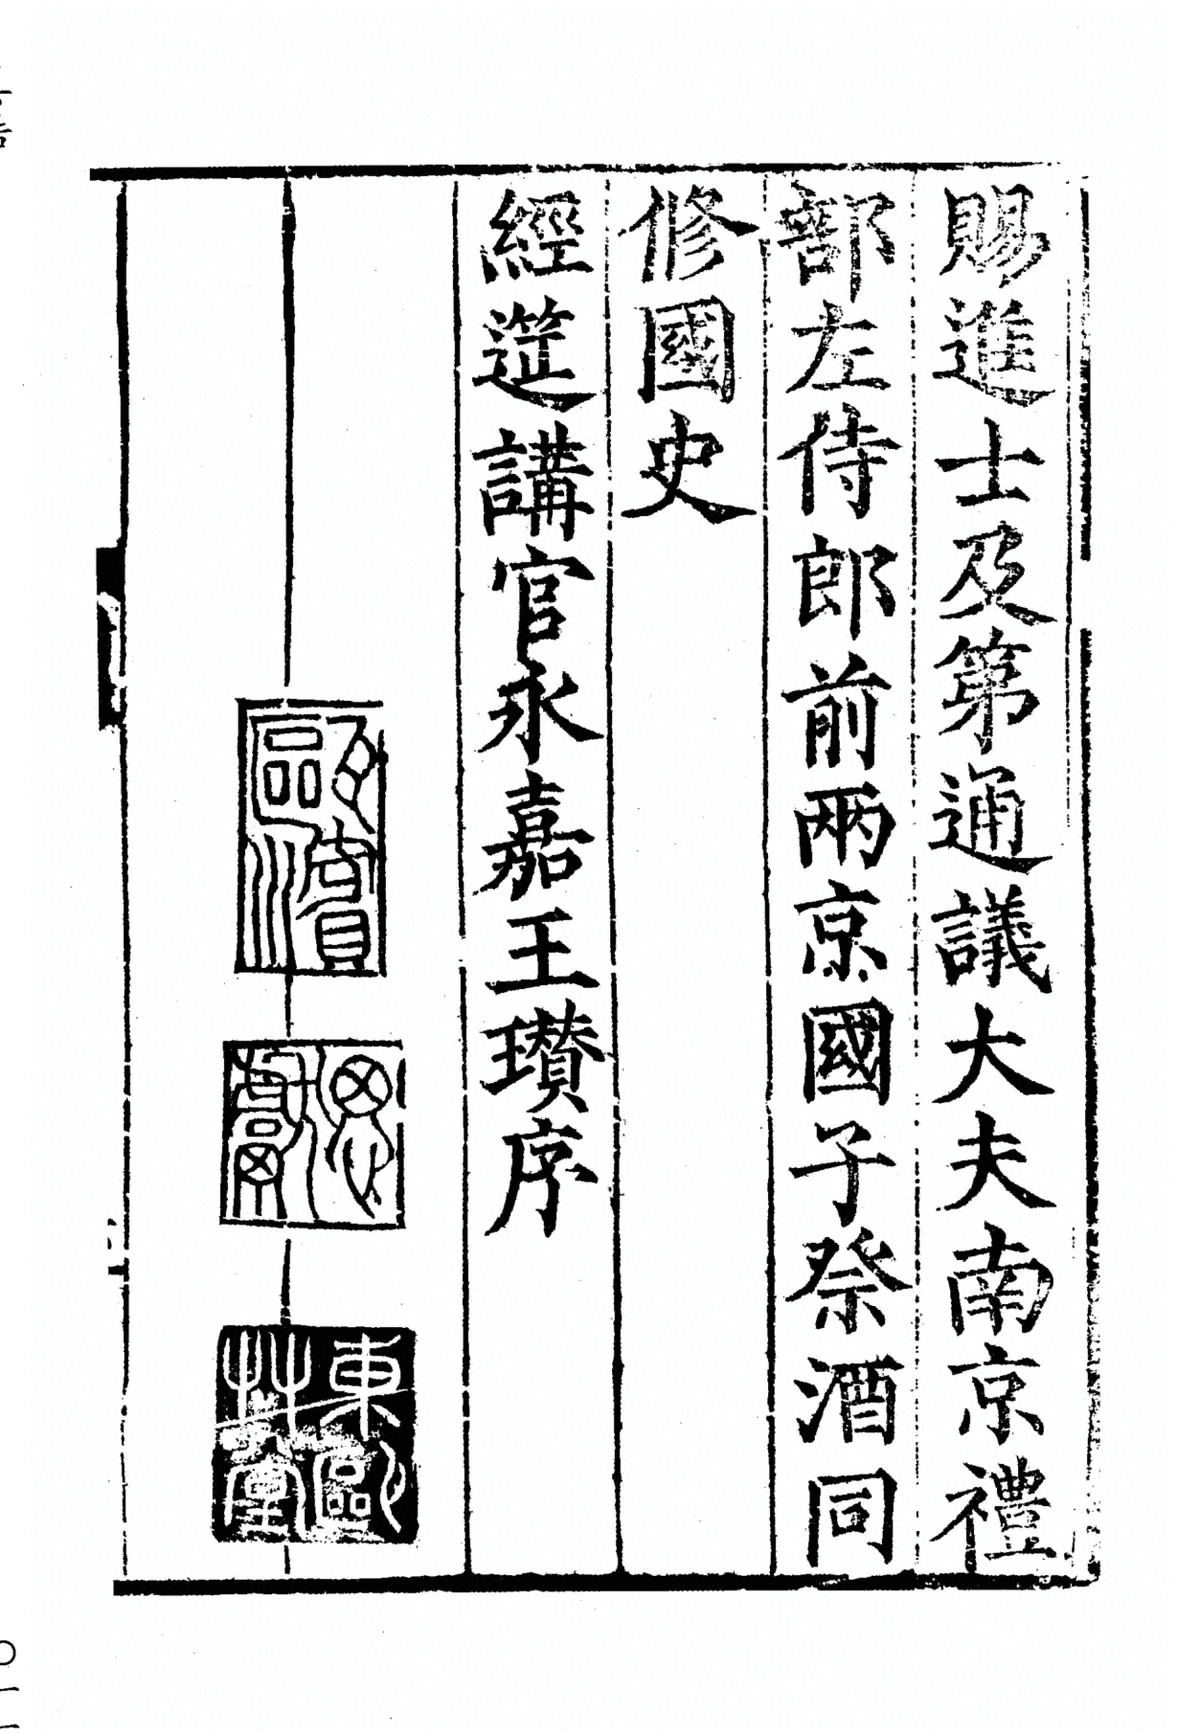 賜進士及第通議大夫南京禮
部左侍郎前兩京國子祭酒同
修國史
經筵講官永嘉王瓚序
甌濱
思獻
東甌艸堂